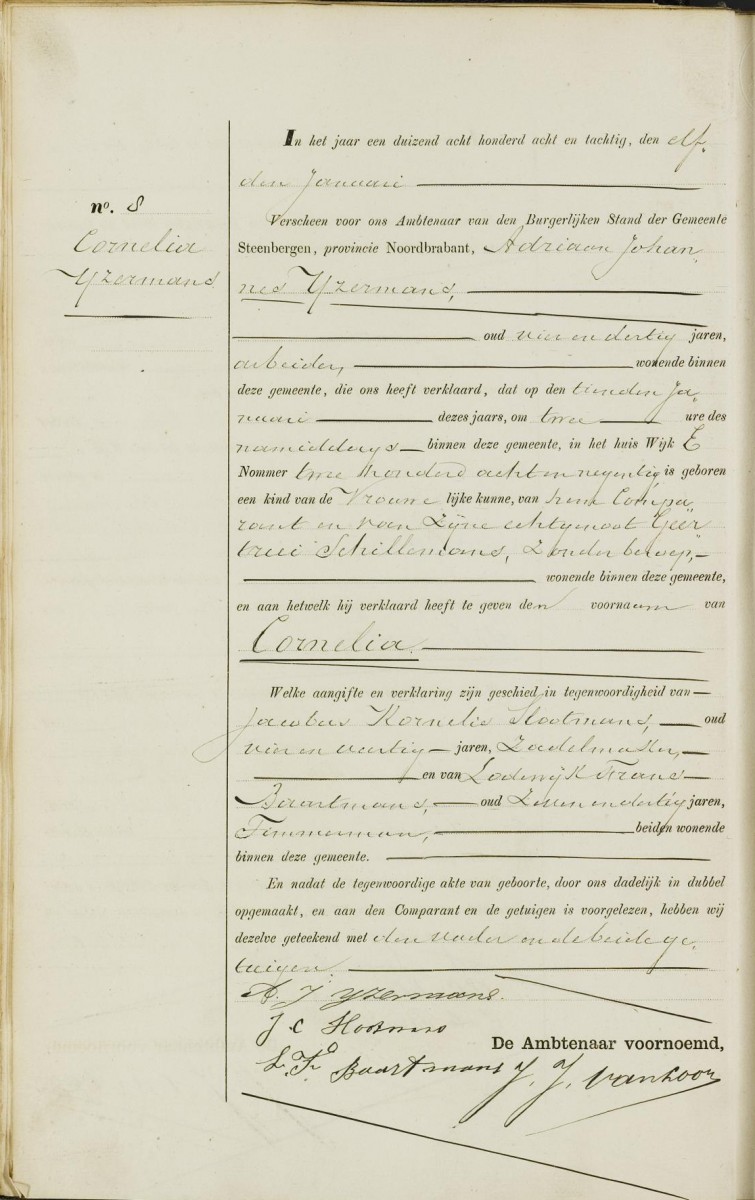 n⁰. 8
Cornelia
Yzermans
In het jaar een duizend acht honderd acht en tachtig, den elf
den Januari
Verscheen voor ons Ambtenaar van den Burgerlijken Stand der Gemeente
Steenbergen, provincie Noordbrabant, Adriaan Johan
nes Yzermans,
oud vier en dertig jaren,
arbeider, wonende binnen
deze gemeente, die ons heeft verklaard, dat op den tienden Ja
nuari dezes jaars, om twee ure des
namiddags binnen deze gemeente, in het huis Wijk E
Nommer twee honderd acht en negentig is geboren
een kind van de Vrouwe lijke kunne, van hem Compa
rant en van Zijne echtgenoot Geer
trui Schillemans, Zonder beroep,
wonende binnen deze gemeente,
en aan hetwelk hij verklaard heeft te geven den voornaam van
Cornelia.
Welke aangifte en verklaring zijn geschied in tegenwoordigheid van
Jacobus Kornelis Slootmans, oud
vier en veertig jaren, Zadelmaker,
en van Lodewijk Frans
Baartmans, oud Zeven en dertig jaren,
Timmerman, beiden wonende
binnen deze gemeente.
En nadat de tegenwoordige akte van geboorte, door ons dadelijk in dubbel
opgemaakt, en aan den Comparant en de getuigen is voorgelezen, hebben wij
dezelve geteekend met den vader en de beide ge
tuigen.
A. J Yzermans.
J C Slootmans
L. F. Baartmans
De Ambtenaar voornoemd,
J. J. van Loon